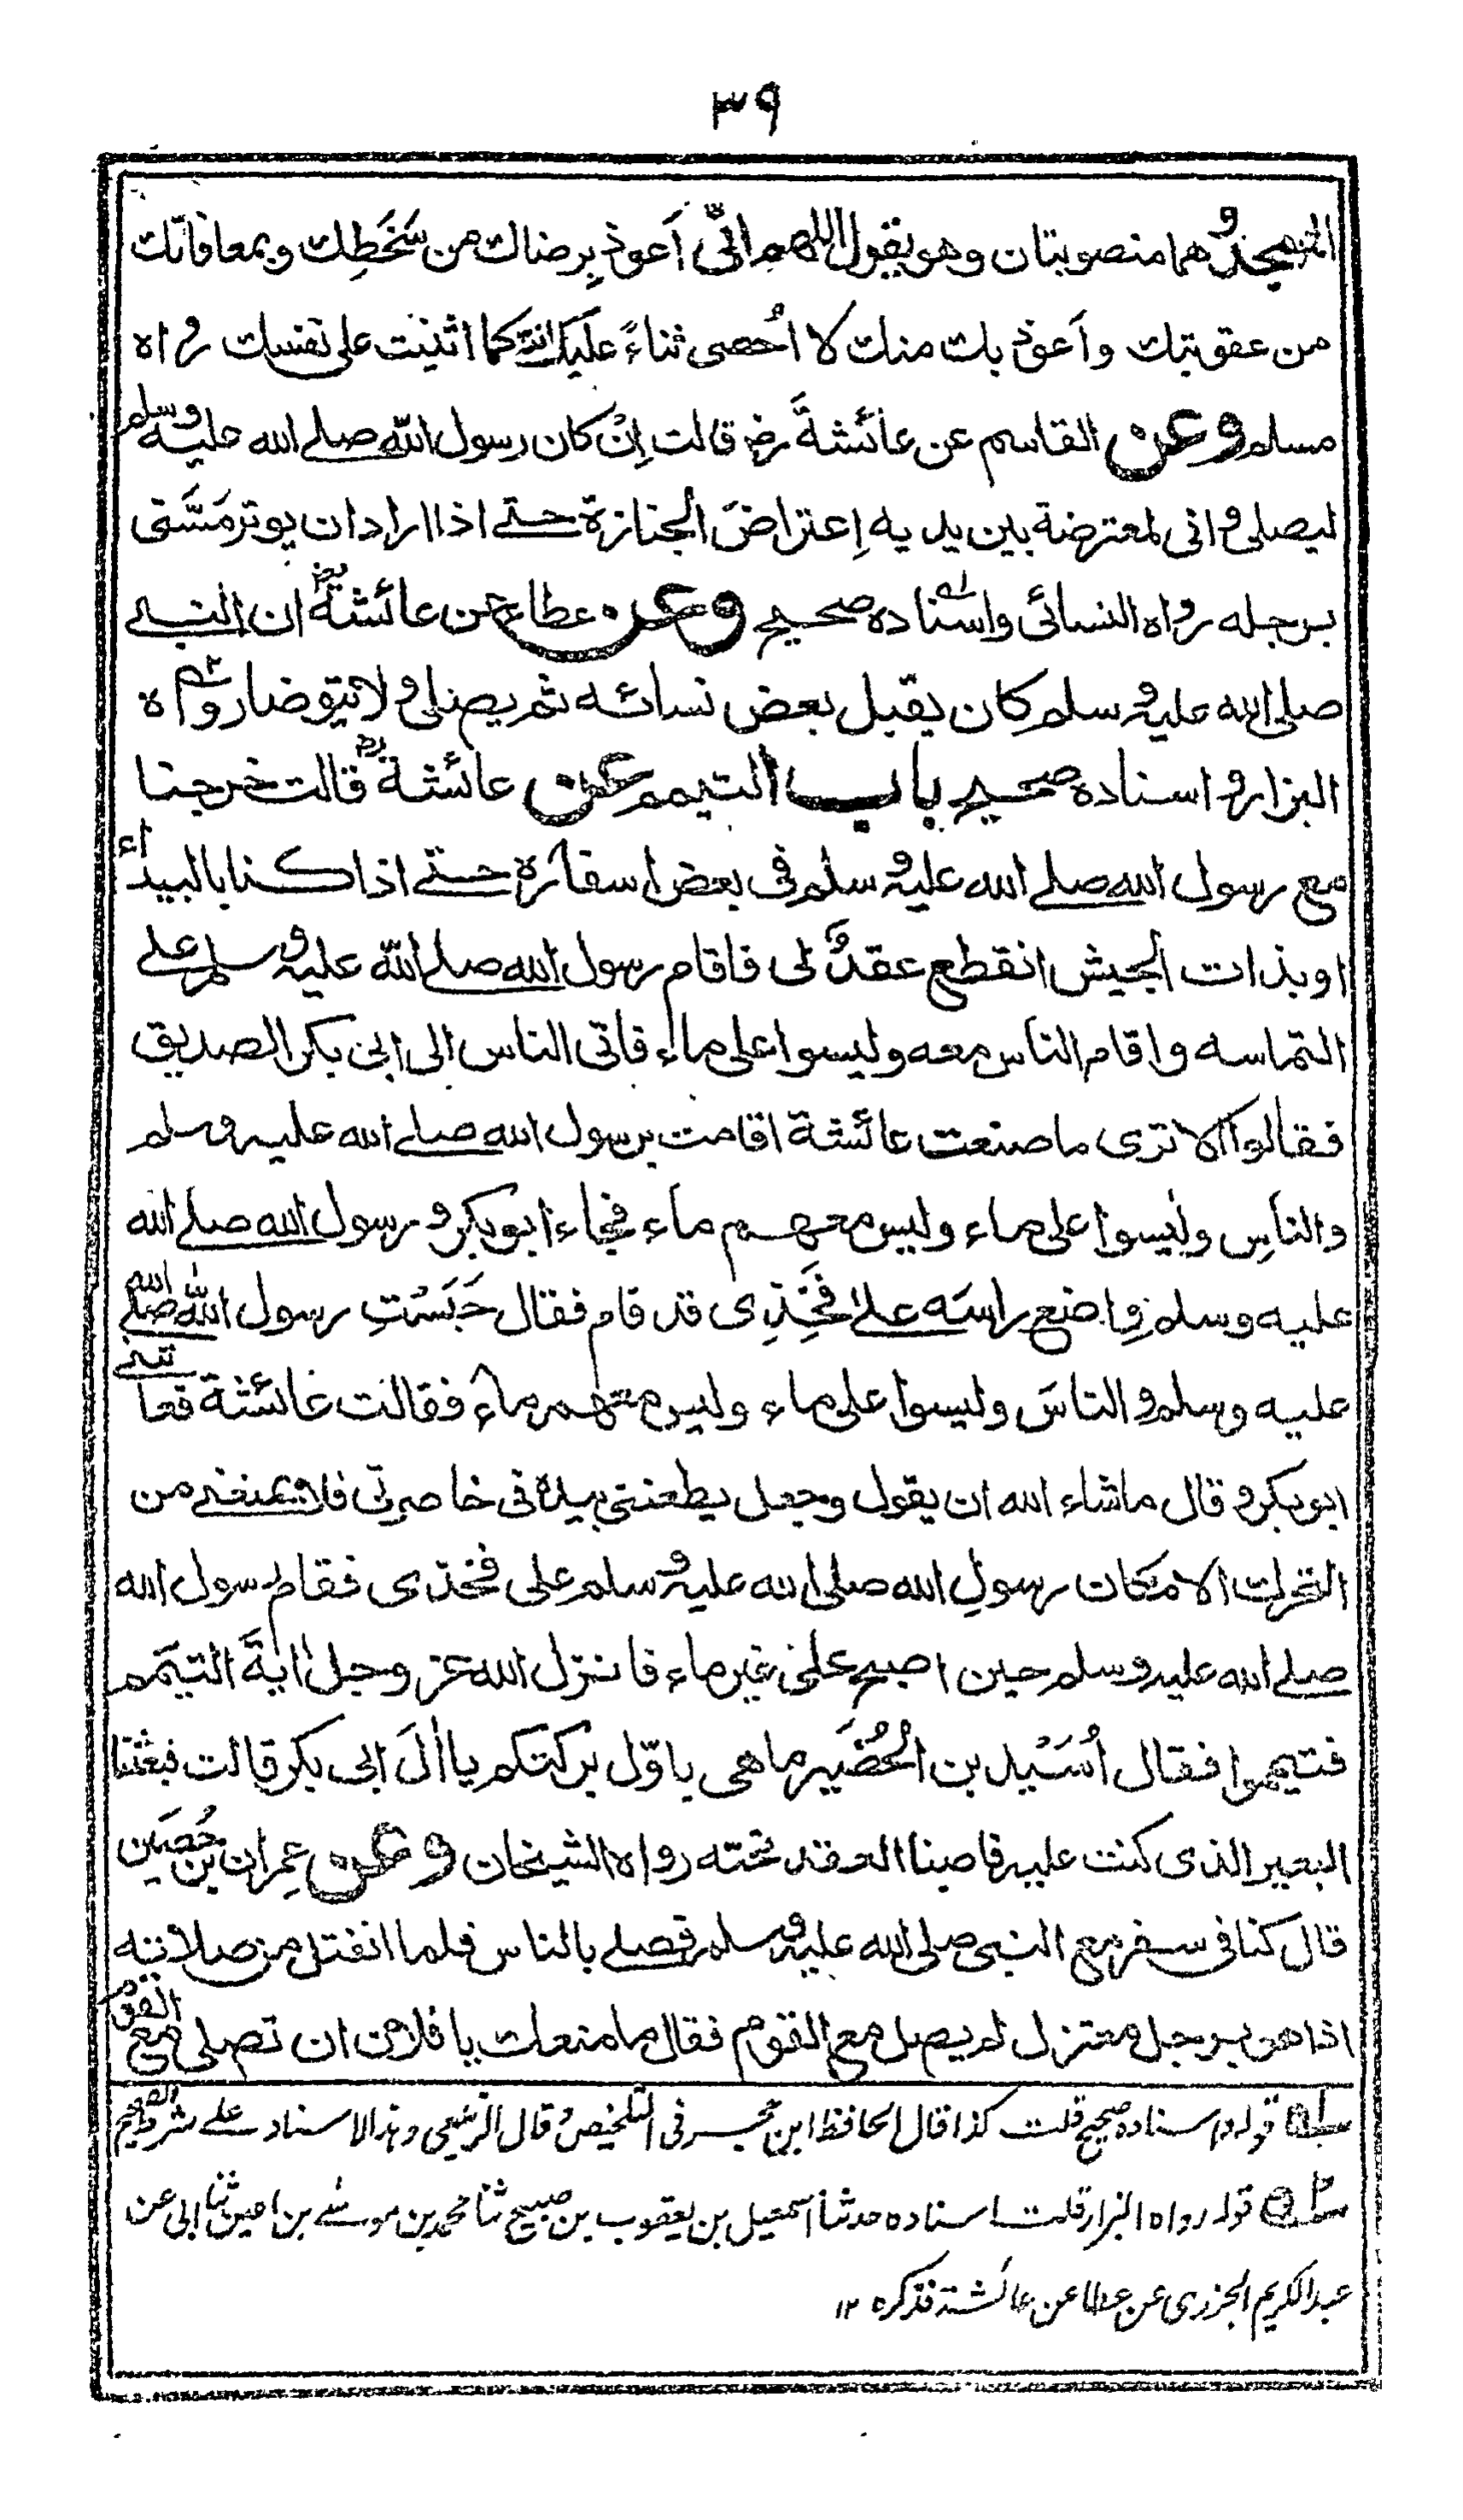 ٣٩
المسجد وهما منصوبتان وهو يقول اللهم انّى اَعوذ بِرضاك من سَخَطِك وبمعافاتك
من عقوبتك واَعوذ بك منك لا اُحصى ثناءً عليك انت كما اثنيت على نفسك رواه
مسلم وعن القاسم عن عائشةَ رض قالت اِنْ كان رسول اللّٰه صلے الله عليه وسلم
ليصلى وانى لمعترضة بين يديه اِعتراضَ الجنازة حتے اذا اراد ان يوتر مَسَّنى
برجله رواه النسائى واسناده صحيح وعن عطاء عن عائشة رض ان النبے
صلى الله عليه وسلم كان يقبل بعض نسائه ثم يصلى ولا يتوضا رواه
البزار واسناده صحيح باب التيمم عن عائشة رض قالت خرجنا
مع رسول الله صلے الله عليه وسلم فى بعض اسفاره حتے اذا كنا بالبيداء
او بذات الجيش انقطع عقدٌ لى فاقام رسول الله صلے اللّٰه عليه وسلم علے
التماسه واقام الناس معه وليسوا على ماء فاتى الناس الى ابى بكر الصديق
فقالوا الا ترى ما صنعت عائشة اقامت برسول الله صلے الله عليه وسلم
والناسِ وليسوا على ماء وليس معهم ماء فجاء ابو بكر ورسول الله صلے الله
عليه وسلم واضع راسَه علے فَخِذِى قد نام فقال حَبَسْتِ رسول اللّٰه صلے الله
عليه وسلم والناسَ وليسوا على ماء وليس معهم ماء فقالت عائشة فعاتبنے
ابو بكر وقال ما شاء الله ان يقول وجعل يطعننى بيده فى خاصرتى فلا يمنعنے من
التحرك الا مكان رسولِ الله صلى الله عليه وسلم على فخذى فقام رسول الله
صلے الله عليه وسلم حين اصبح على غير ماء فانزل الله عز وجل اٰيةَ التيَمم
فتيمموا فقال اُسَيْد بن الحُضَير ما هى باوّل بركتكم يا اٰلَ ابى بكر قالت فبعثنا
البعير الذى كنت عليه فاصبنا العقد تحته رواه الشيخان وعن عِمران بن حُصَين
قال كنا فى سفر مع النبى صلى الله عليه وسلم فصلے بالناس فلما انفتل من صلاته
اذا هو برجل معتزل لم يصل مع القوم فقال ما منعك يا فلان ان تصلى مع القوم
قوله واسناده صحيح قلت كذا قال الحافظ ابن حجر فى التلخيص وقال الزيلعى وهذا الاسناد علے شرط الصحيح
قوله رواه البزار قلت اسناده حدثنا اسمعيل بن يعقوب بن صبيح ثنا محمد بن موسے بن اعين ثنا ابى عن
عبد الكريم الجزرى عن عطا عن عائشة فذكره ١٢